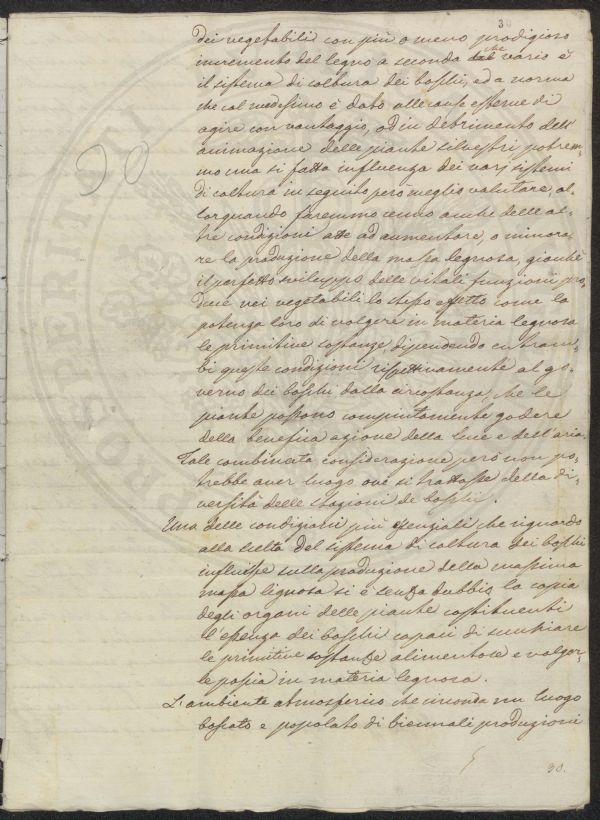 30
dei vegetabili con più o meno prodigioso
incremento del legno a seconda che vario è
il sistema di coltura dei boschi, ed a norma
che col medesimo è dato alle cause esterne di
agire con vantaggio, od in detrimento dell'
animazione delle piante silvestri potrem-
mo una sì fatta influenza dei varj sistemi
di coltura in seguito però meglio valutare, al-
lorquando faremmo cenno anche delle al-
tre condizioni atte ad aumentare, o minora-
re la produzione della massa legnosa, giacchè
il perfetto sviluppo delle vitali funzioni pro-
duce nei vegetabili lo stesso effetto come la
potenza loro di volgere in materia legnosa
le primitive sostanze dipendendo entram-
bi queste condizioni rispettivamente al go-
verno dei boschi dalla circostanza, che le
piante possono compiutamente godere
della benefica azione della luce e dell'aria,
Tale combinata considerazione però non po-
trebbe aver luogo ove si trattasse della di-
versità delle stazioni de boschi.
Una delle condizioni più essenziali che riguardo
alla scelta del sistema di coltura dei boschi
influisce sulla produzione della massima
massa lignosa si è senza dubbio la copia
degli organi delle piante costituenti
l'essenza dei boschi capaci di succhiare
le primitive sostanze alimentose e volger-
le poscia in materia legnosa.
L'ambiente atmosferico che circonda un luogo
boscato e popolato di biennali produzioni
30.
PROSPERITATI